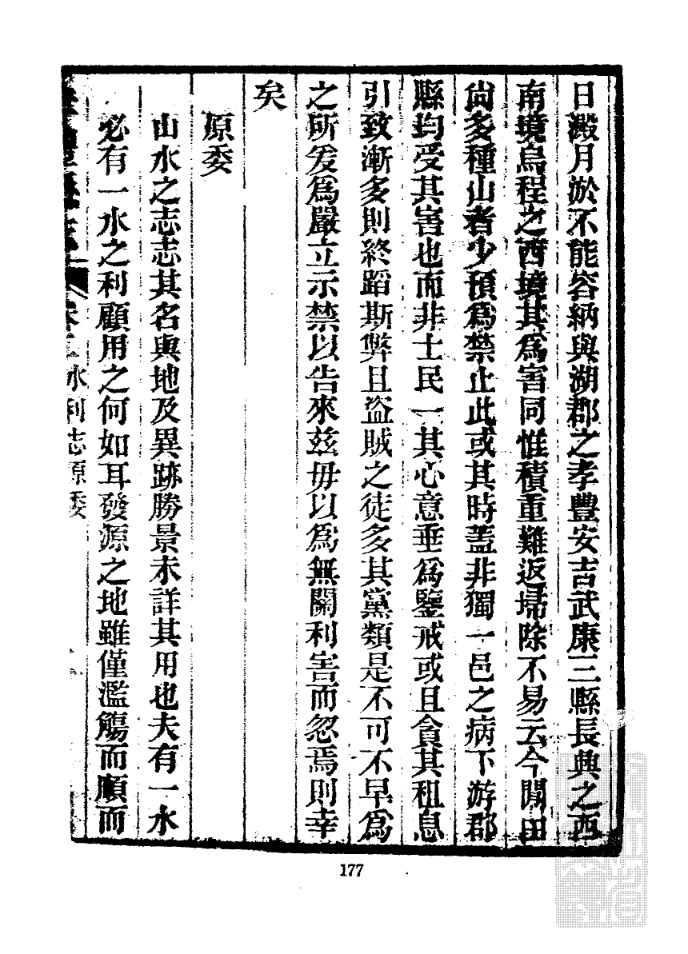 日澱月淤不能容納與湖郡之孝豐安吉武康三縣長興之西
南境烏程之西境其為害同惟積重難返埽除不易云今閒田
尚多種山者少預為禁止此或其時蓋非獨一邑之病下游郡
縣均受其害也而非土民一其心意垂為鑒戒或且貪其租息
引致漸多則終蹈斯弊且盜賊之徒多其黨類是不可不早為
之所爰為嚴立示禁以告來茲毋以為無關利害而忽焉則幸
矣
原委
山水之志志其名與地及異跡勝景未詳其用也夫有一水
必有一水之利顧用之何如耳發源之地雖僅濫觴而順而
水利志原委
177